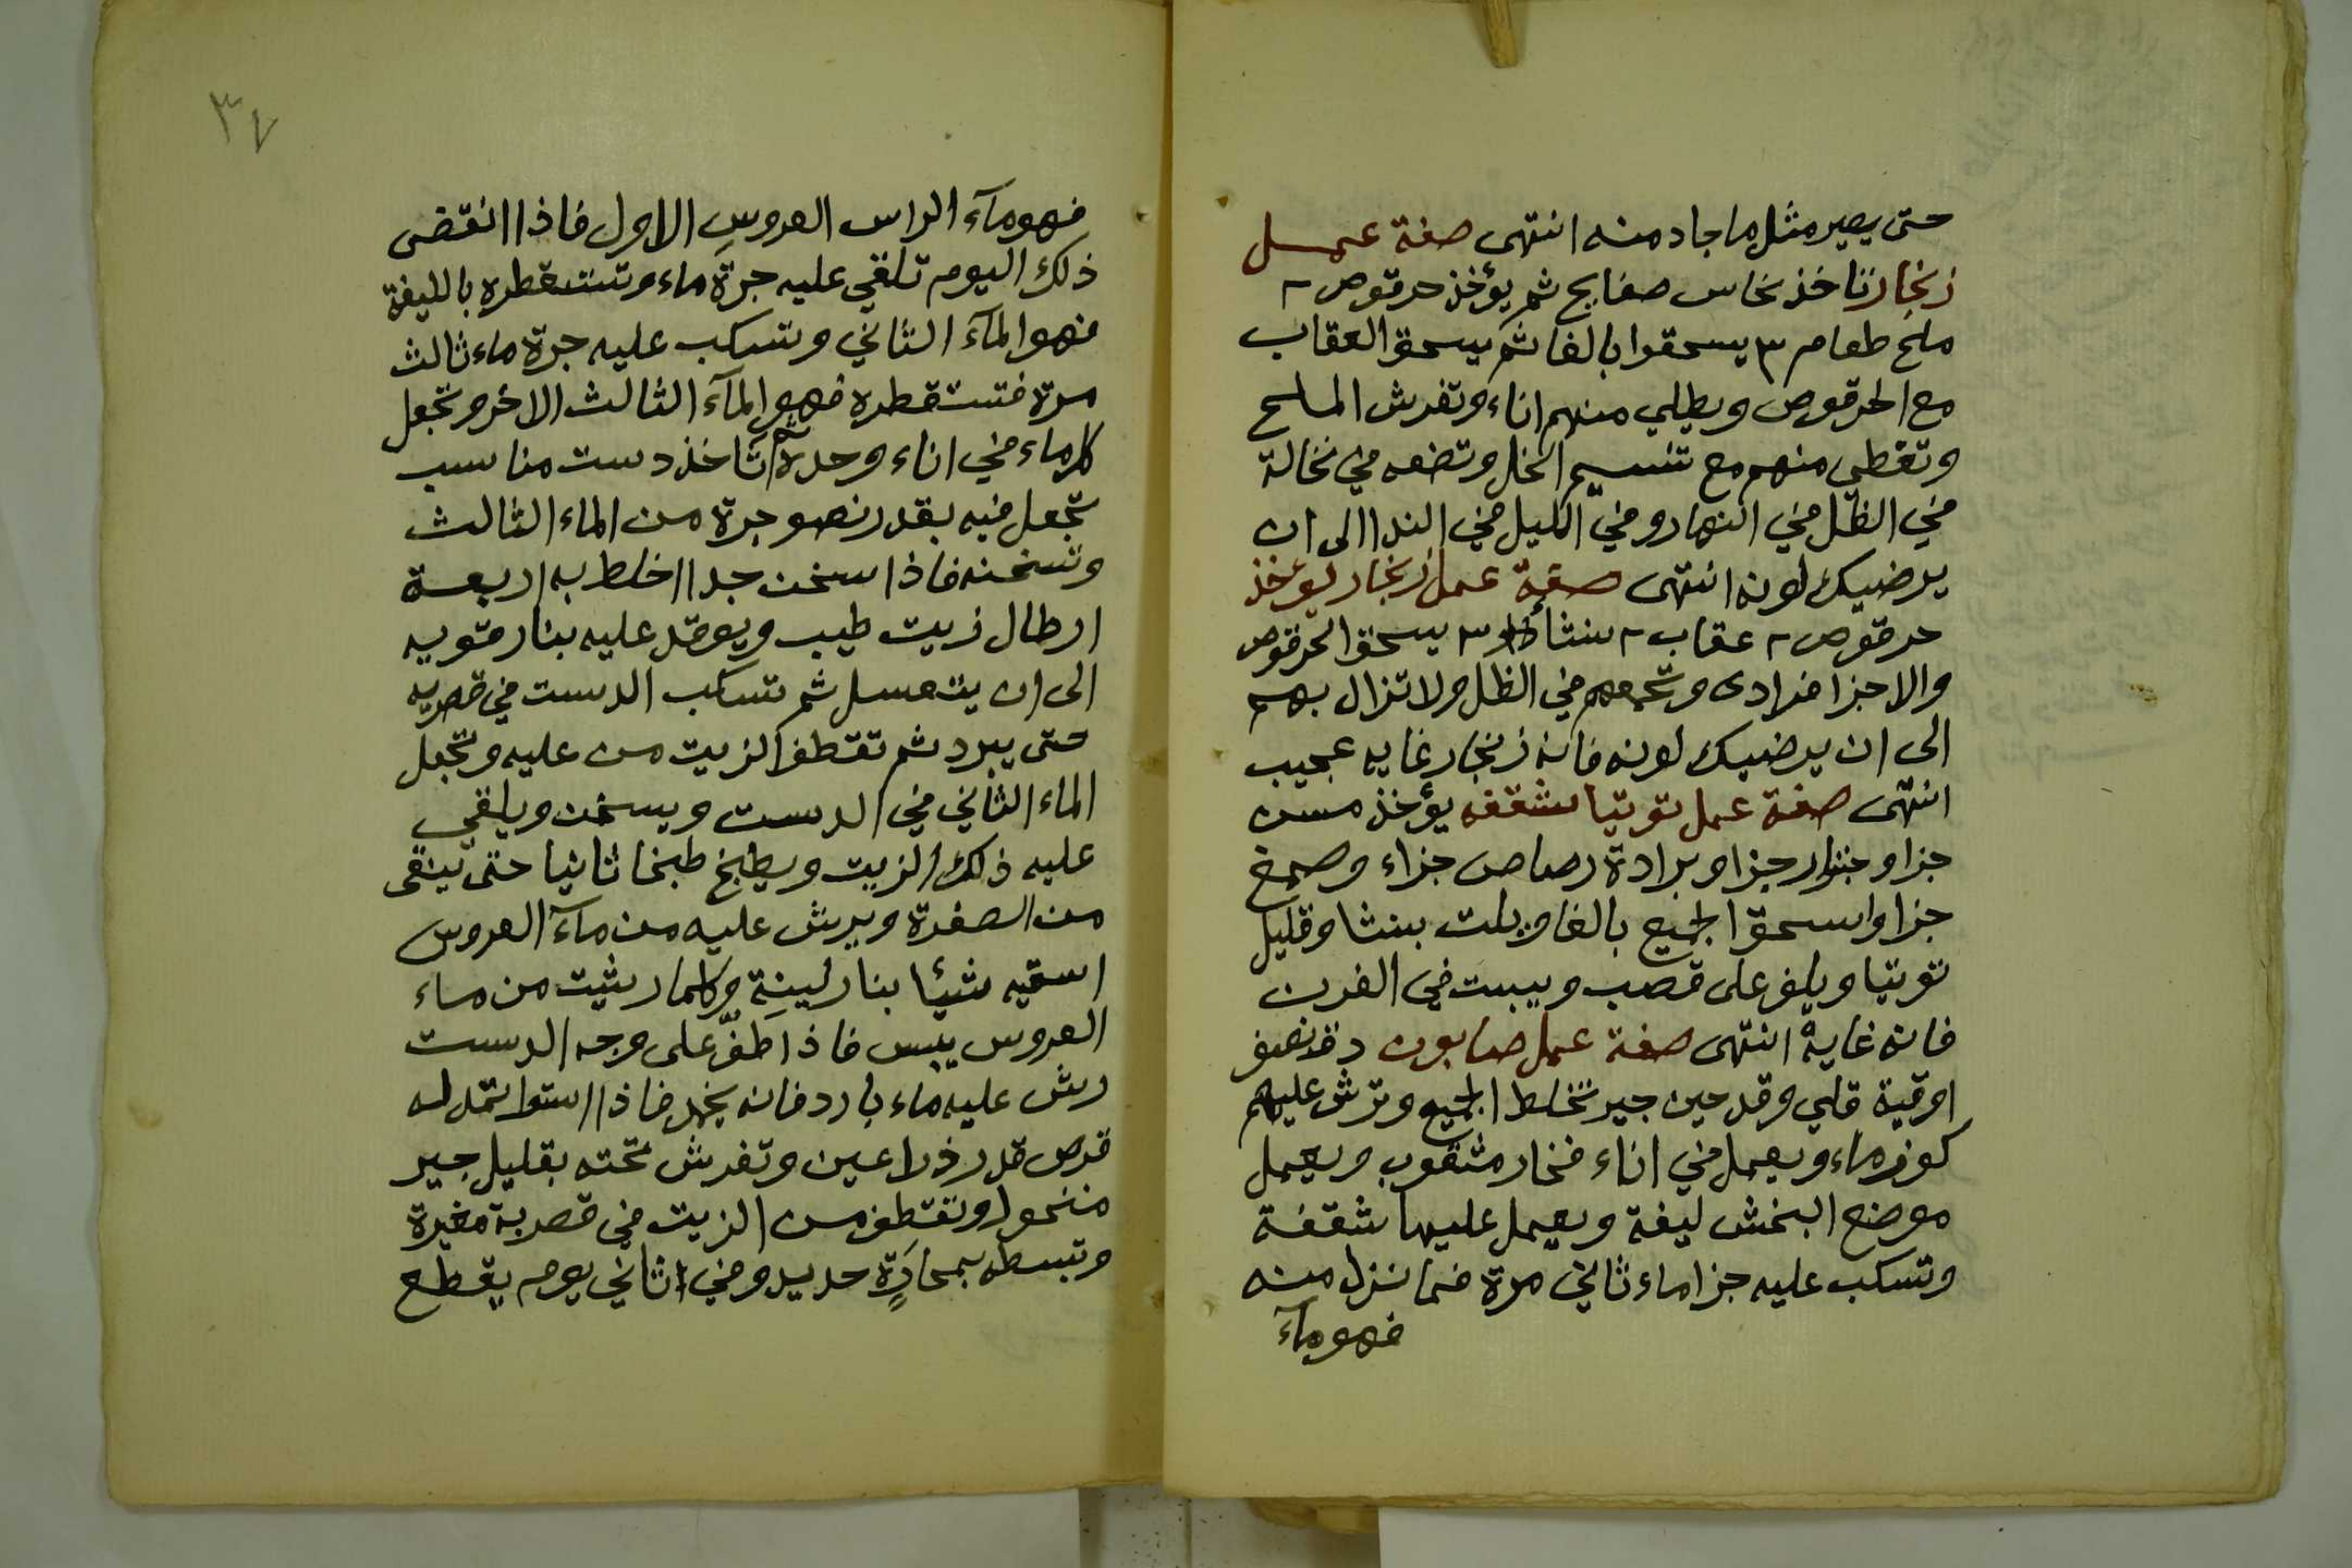 حتى يصير مثل ما جاد منه انتهى صفة عمل
زنجار تاخذ نحاس صفايح ثم يؤخذ حرقوص ٢
ملح طعام ٣ يسحقوا بالغا ثم يسحق العقاب
مع الحرقوص ويطلى منهم اناء وتفرش الملح
وتغطى منهم مع تنسيم الخل وتضعه في نخالة
في الظل في النهار وفي الليل في الندا الى ان
يرضيك لونه انتهى صفة عمل زنجار يؤخذ
حرقوص ٢ عقاب ٢ ٣ يسحق الحرقوص
والاجزا فرادى وتجمعهم في الظل ولا تزال بهم
الى ان يرضيك لونه فانه زنجار غايه عجيب
انتهى صفة عمل توتيا شقفه يؤخذ مسن
جزا وجنزار جزا وبرادة رصاص جزاء وصمغ
جزا واسحق الجميع بالغا ويلت بنشا وقليل
توتيا ويلف على قصب ويبيت في الفرن
فانه غاية انتهى صفة عمل صابون دق نصف
اوقية قلي وقدحين جير تخلط الجميع وترش عليهم
كوز ماء ويعمل في اناء فخار مثقوب ويعمل
موضع البخش ليفة ويعمل عليها شقفة
وتسكب عليه جزا ماء ثاني مرة فما نزل منه
فهو مآء
٣٧
فهو مآء الراس العروس الاول فاذا انقضى
ذلك اليوم تلقي عليه جرة ماء وتستقطره بالليفة
فهو المآء الثاني وتسكب عليه جرة ماء ثالث
مرة فتستقطره فهو المآء الثالث الاخر وتجعل
كل ماء في اناء وحدة ثم تاخذ دست مناسب
تجعل فيه بقدر نصف جرة من الماء الثالث
وتسخنه فاذا سخن جدا اخلط به اربعة
ارطال زيت طيب ويوقد عليه بنار قويه
الى ان يتعسل ثم تسكب الدست في قصريه
حتى يبرد ثم تقطف الزيت من عليه وتجعل
الماء الثاني في الدست ويسخن ويلقي
عليه ذلك الزيت ويطبخ طبخا ثانيا حتى ينقى
من الصفرة ويرش عليه من مآء العروس
اسقيه شيئا بنار لينة وكلما رشيت من ماء
العروس يبس فاذا طف على وجه الدست
رش عليه ماء بارد فانه يخمد فاذا استوا تمد له
قرص قدر ذراعين وتفرش تحته بقليل جير
منخول وتقطف من الزيت في قصرية صغيرة
وتبسطه بمحارة حديد وفي اثاني يوم يقطع